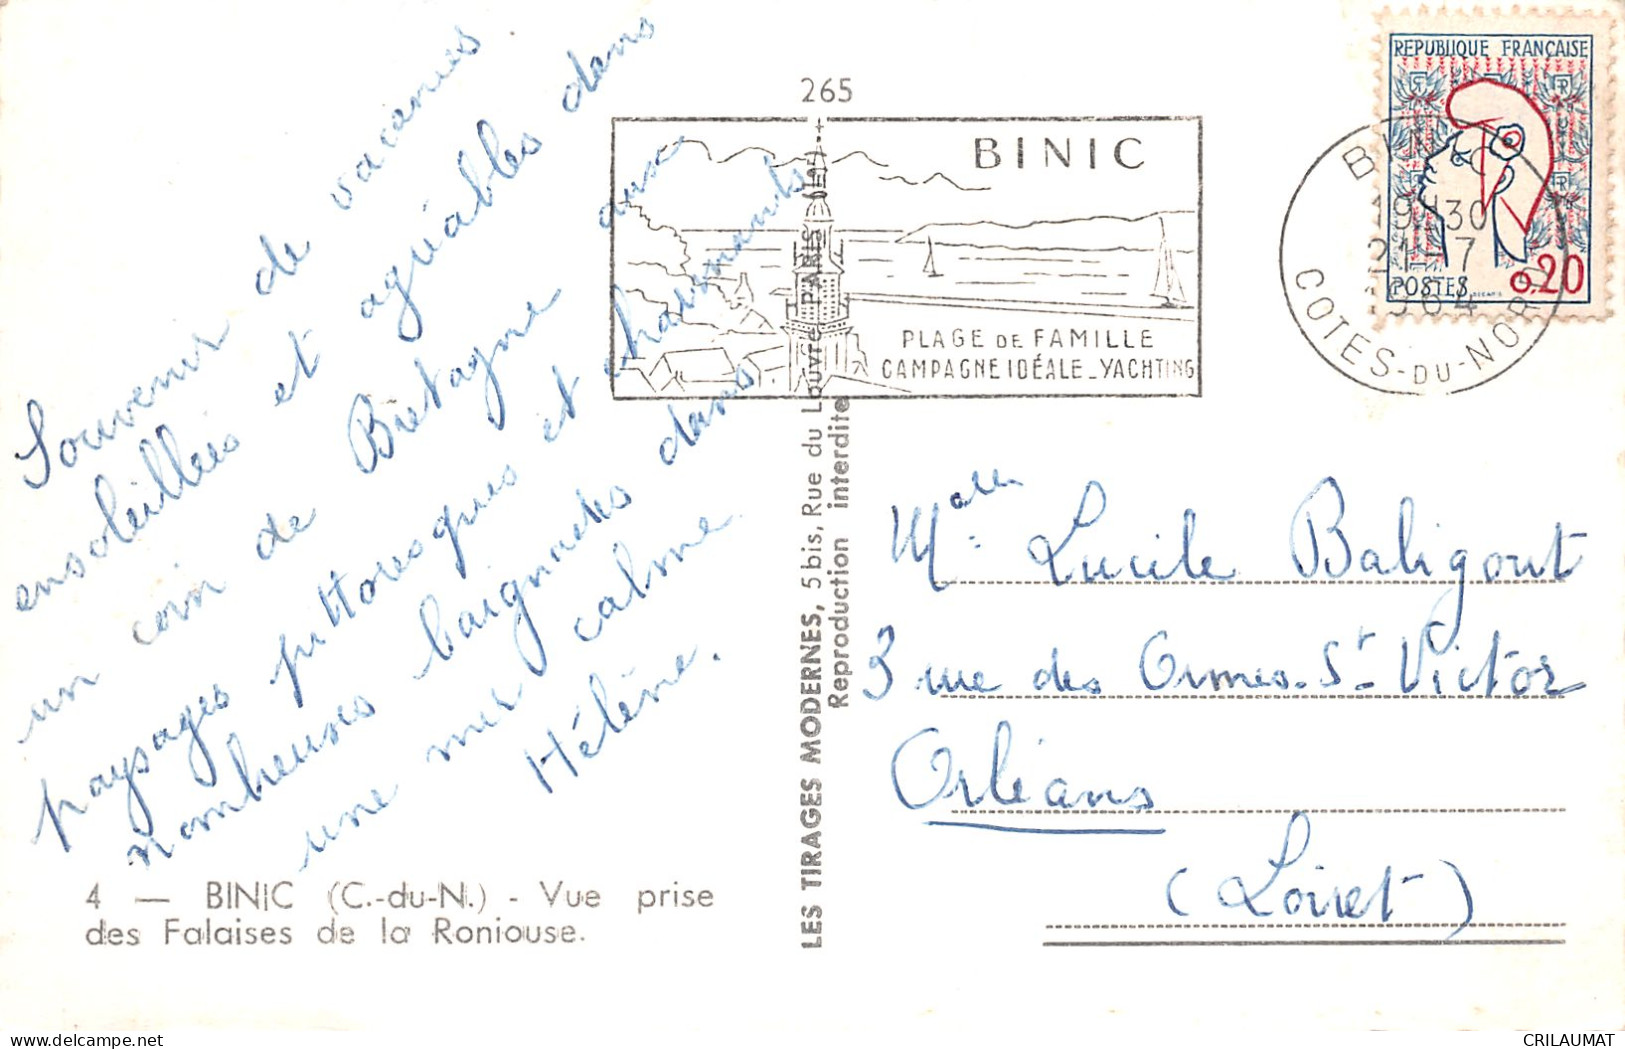 Souvenir de vacances
ensoleillées et agréables dans
un coin de Bretagne aux
paysages pittoresques et charmants.
nombreuses baignades dans
une mer calme.
Hélène.
4 — BINIC (C.-du-N.) - Vue prise
des Falaises de la Roniouse.
LES TIRAGES MODERNES, 5 bis, Rue du Louvre - PARIS
Reproduction interdite
265
BINIC
PLAGE DE FAMILLE
CAMPAGNE IDÉALE_YACHTING
REPUBLIQUE FRANÇAISE
POSTES
0,20
19H30
21-7
1964
COTES-DU-NORD
Lucile Baligout
3 rue des Ormes-St-Victor
Orléans
(Loiret)
delcampe.net
CRILAUMAT